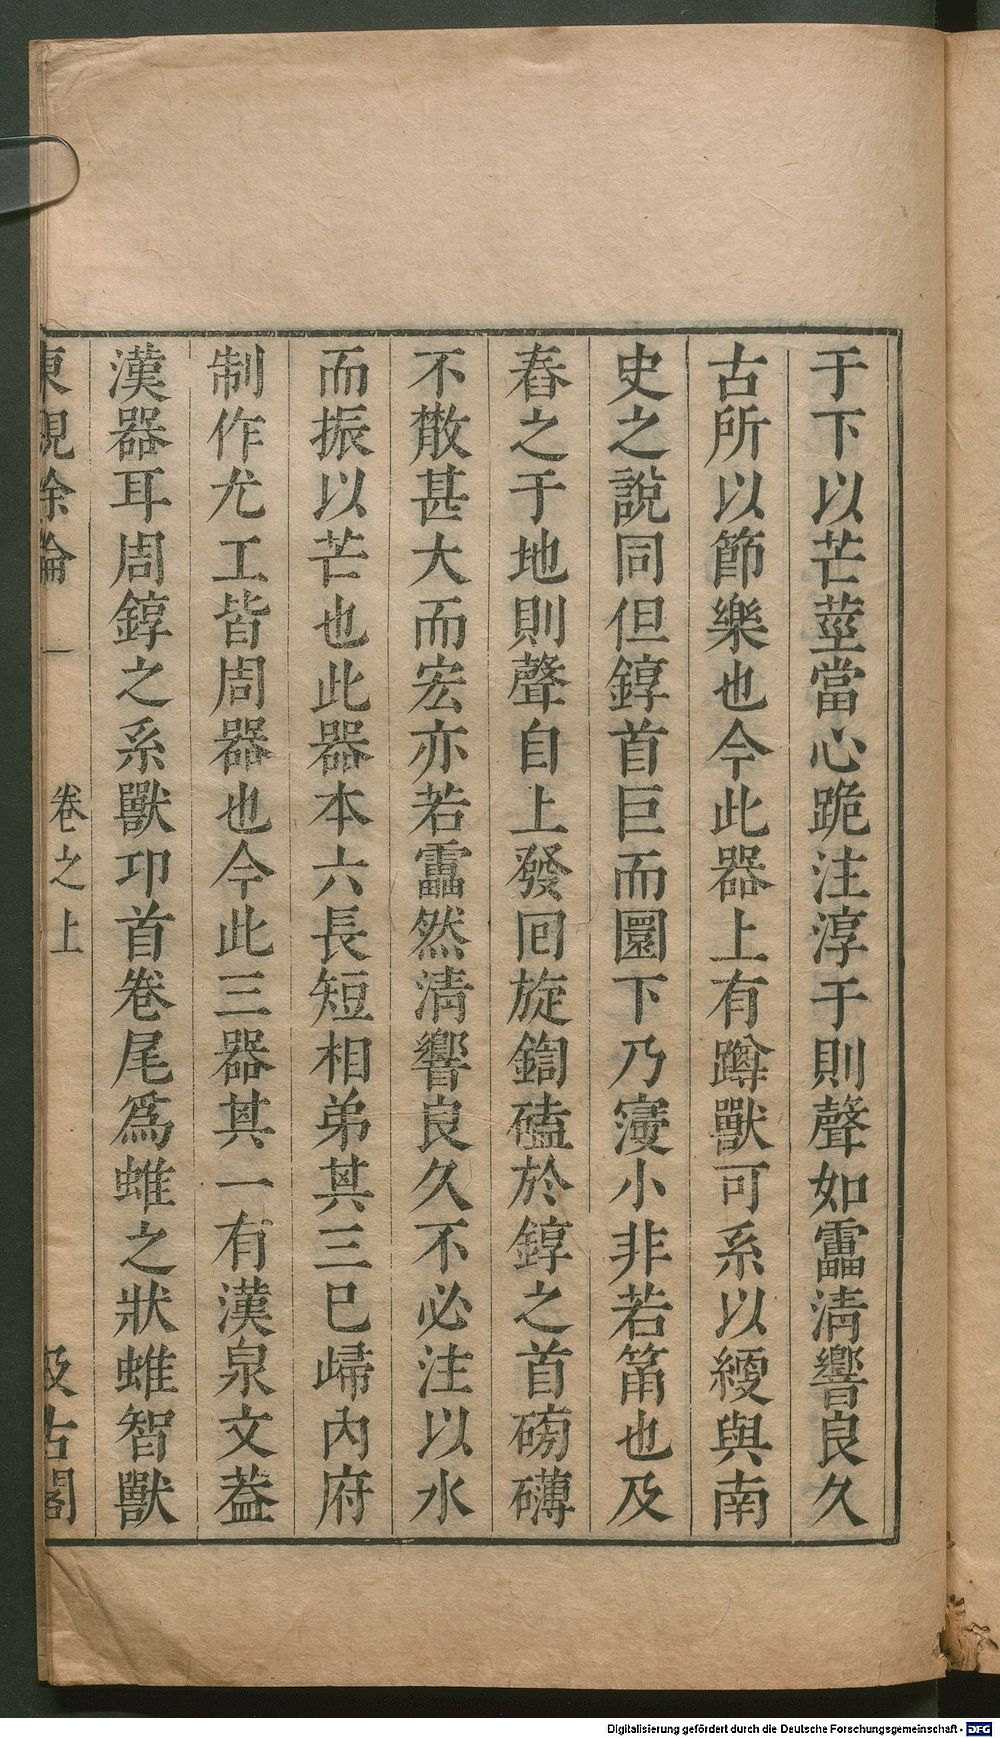 于下以芒莖當心跪注淳于則聲如靁淸響良久
古所以節樂也今此器上有蹲獸可系以緮與南
史之說同但錞首巨而圜下乃寖小非若筩也及
舂之于地則聲自上發囘旋鍧磕於錞之首磅礴
不散甚大而宏亦若靁然淸響良久不必注以水
而振以芒也此器本六長短相弟其三巳歸內府
制作尤工皆周器也今此三器其一有漢泉文葢
漢器耳周錞之系獸卬首卷尾爲蜼之狀蜼智獸
東觀余論 一 卷之上 汲古閣
Digitalisierung gefördert durch die Deutsche Forschungsgemeinschaft - DFG